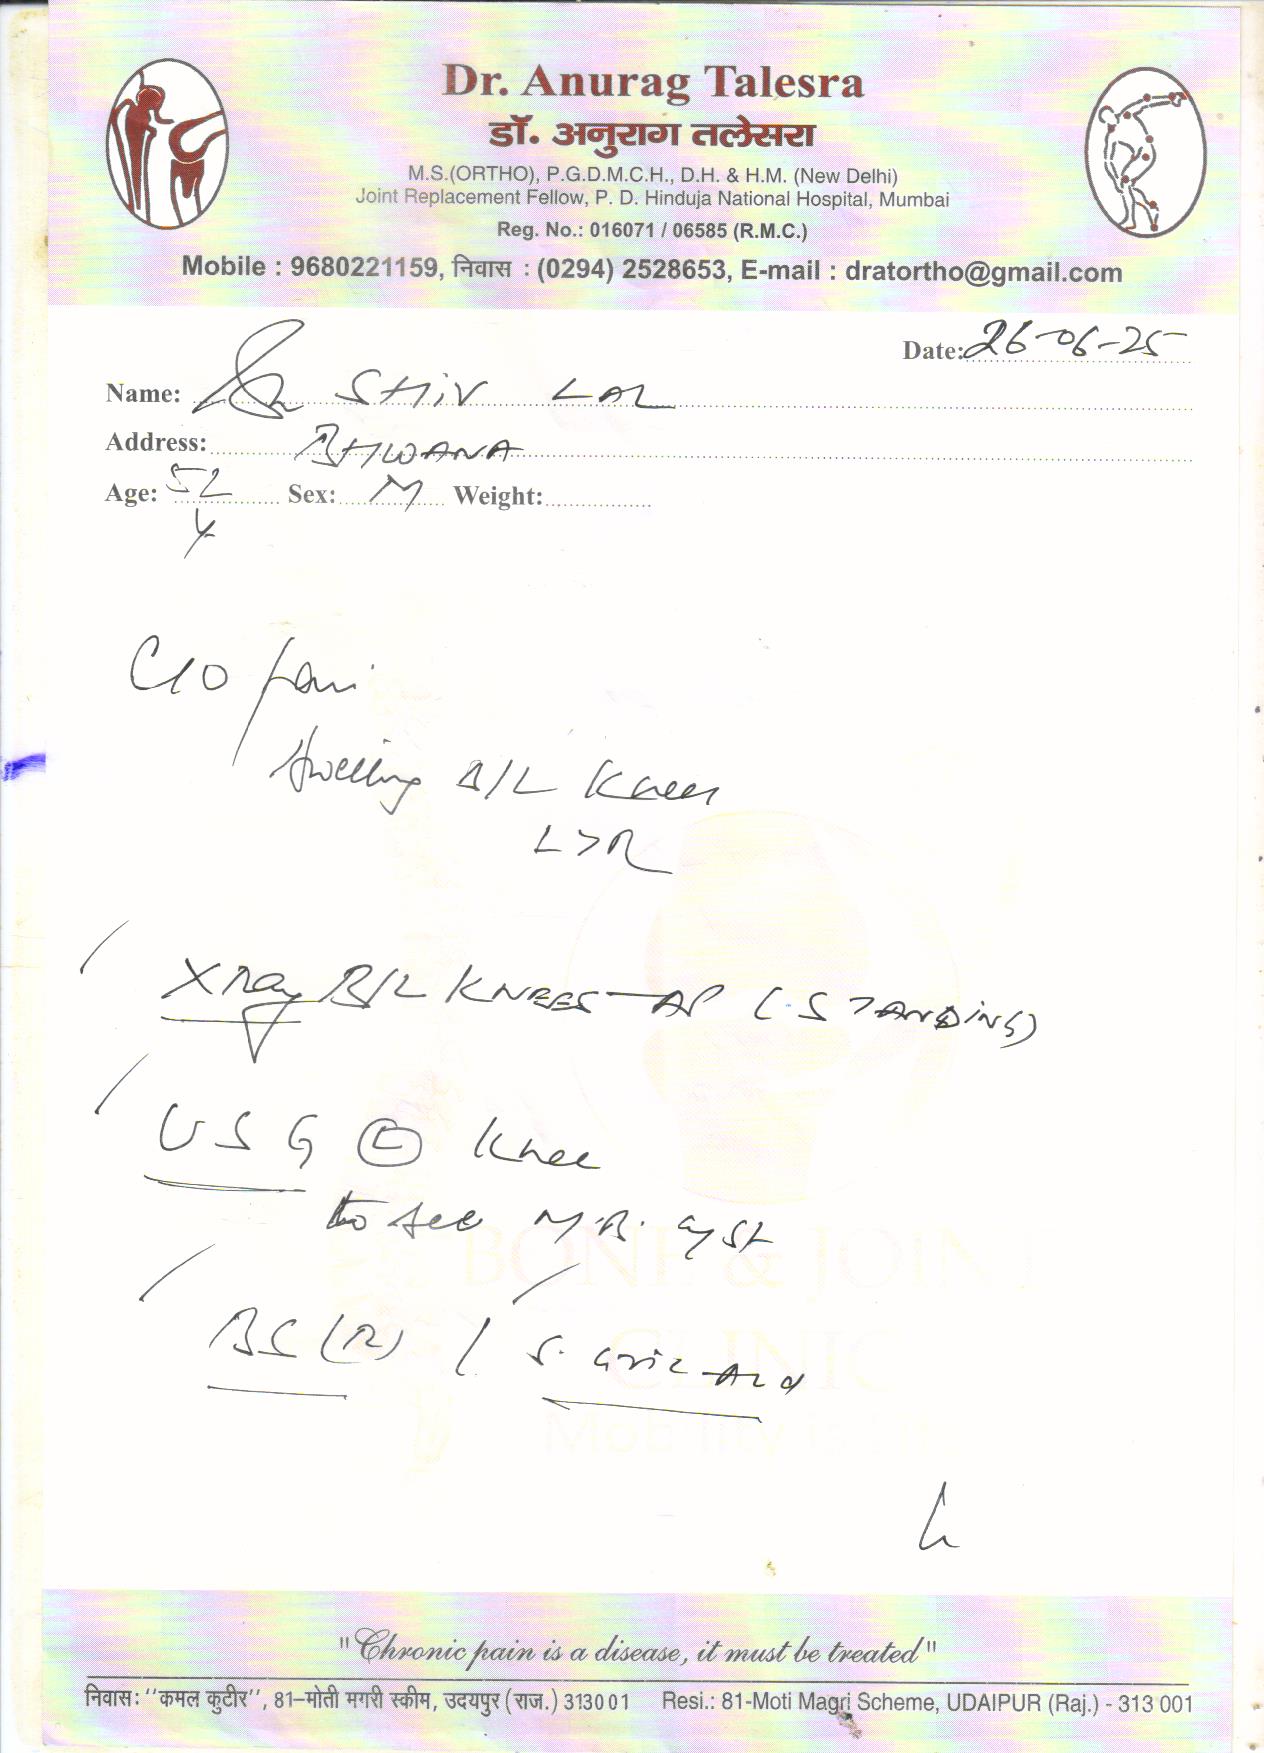 Dr. Anurag Talesra
डॉ. अनुराग तलेसरा
M.S.(ORTHO), P.G.D.M.C.H., D.H. & H.M. (New Delhi)
Joint Replacement Fellow, P. D. Hinduja National Hospital, Mumbai
Reg. No.: 016071 / 06585 (R.M.C.)
Mobile : 9680221159, निवास : (0294) 2528653, E-mail : dratortho@gmail.com
Date: 26-06-25
Name: SHIV LAL
Address: BHWANA
Age: 52 Y Sex: M Weight:
C/O pain
swelling B/L Knees
L>R
Xray B/L KNEES-AP (STANDING)
USG (L) Knee
to see M.B. cyst
BS (R) / S. uric acid
BONE & JOINT
CLINIC
"Chronic pain is a disease, it must be treated"
निवास: ‘‘कमल कुटीर’’, 81–मोती मगरी स्कीम, उदयपुर (राज.) 313001 Resi.: 81-Moti Magri Scheme, UDAIPUR (Raj.) - 313 001